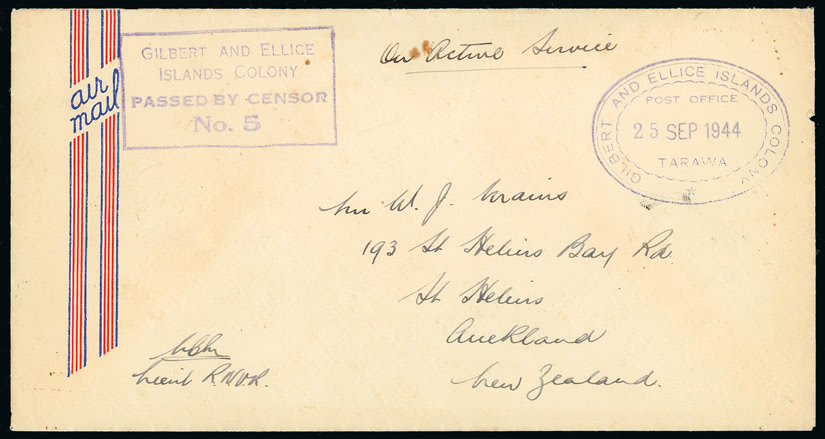 air
mail
GILBERT AND ELLICE
ISLANDS COLONY
PASSED BY CENSOR
No. 5
On Active Service
GILBERT AND ELLICE ISLANDS COLONY
POST OFFICE
25 SEP 1944
TARAWA
*
W. J.
193 St Heliers Bay Rd.
St Heliers
Auckland
New Zealand.
Lieut R.N.V.R.